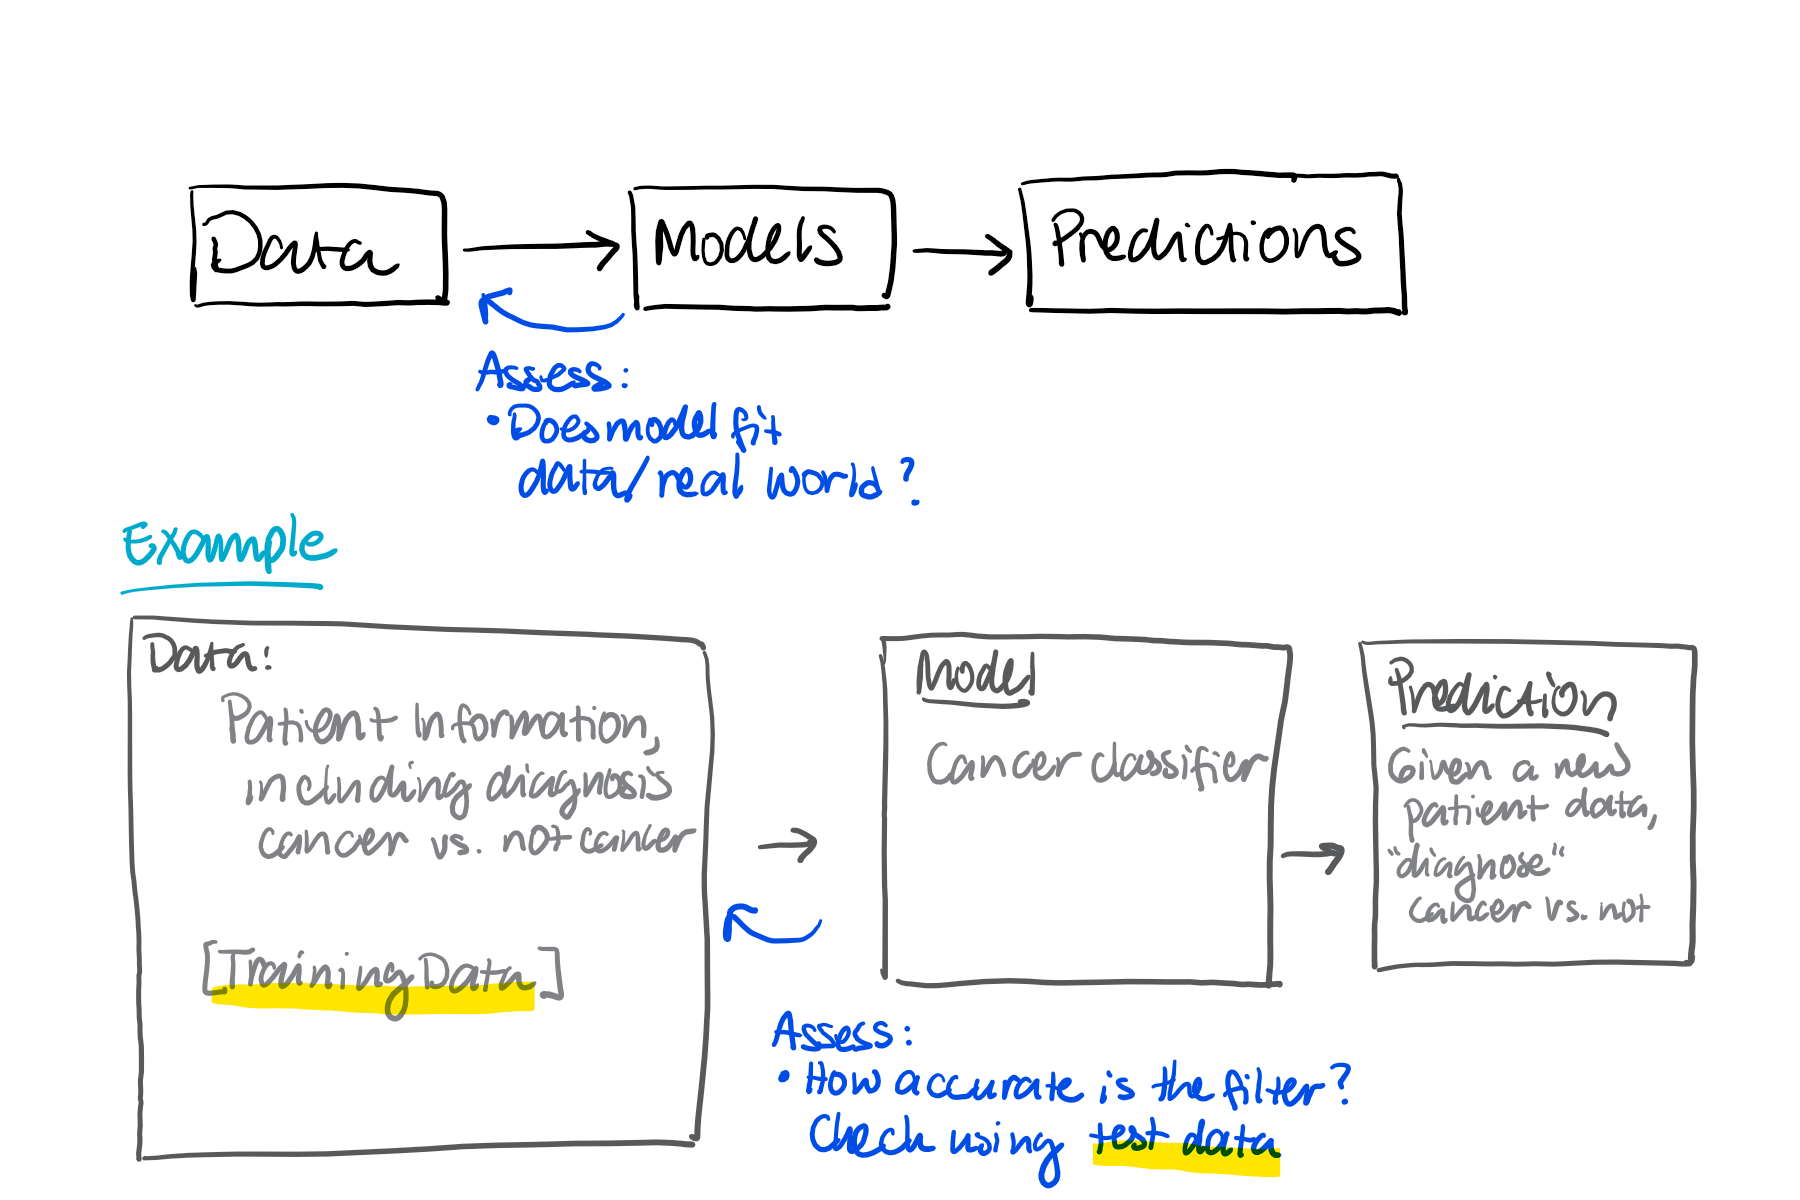 Data
Models
Predictions
Assess:
• Does model fit
data/real world?
Example
Data:
Patient Information,
including diagnosis
cancer vs. not cancer
[Training Data]
Model
Cancer classifier
Prediction
Given a new
patient data,
"diagnose"
cancer vs. not
Assess:
• How accurate is the filter?
Check using test data